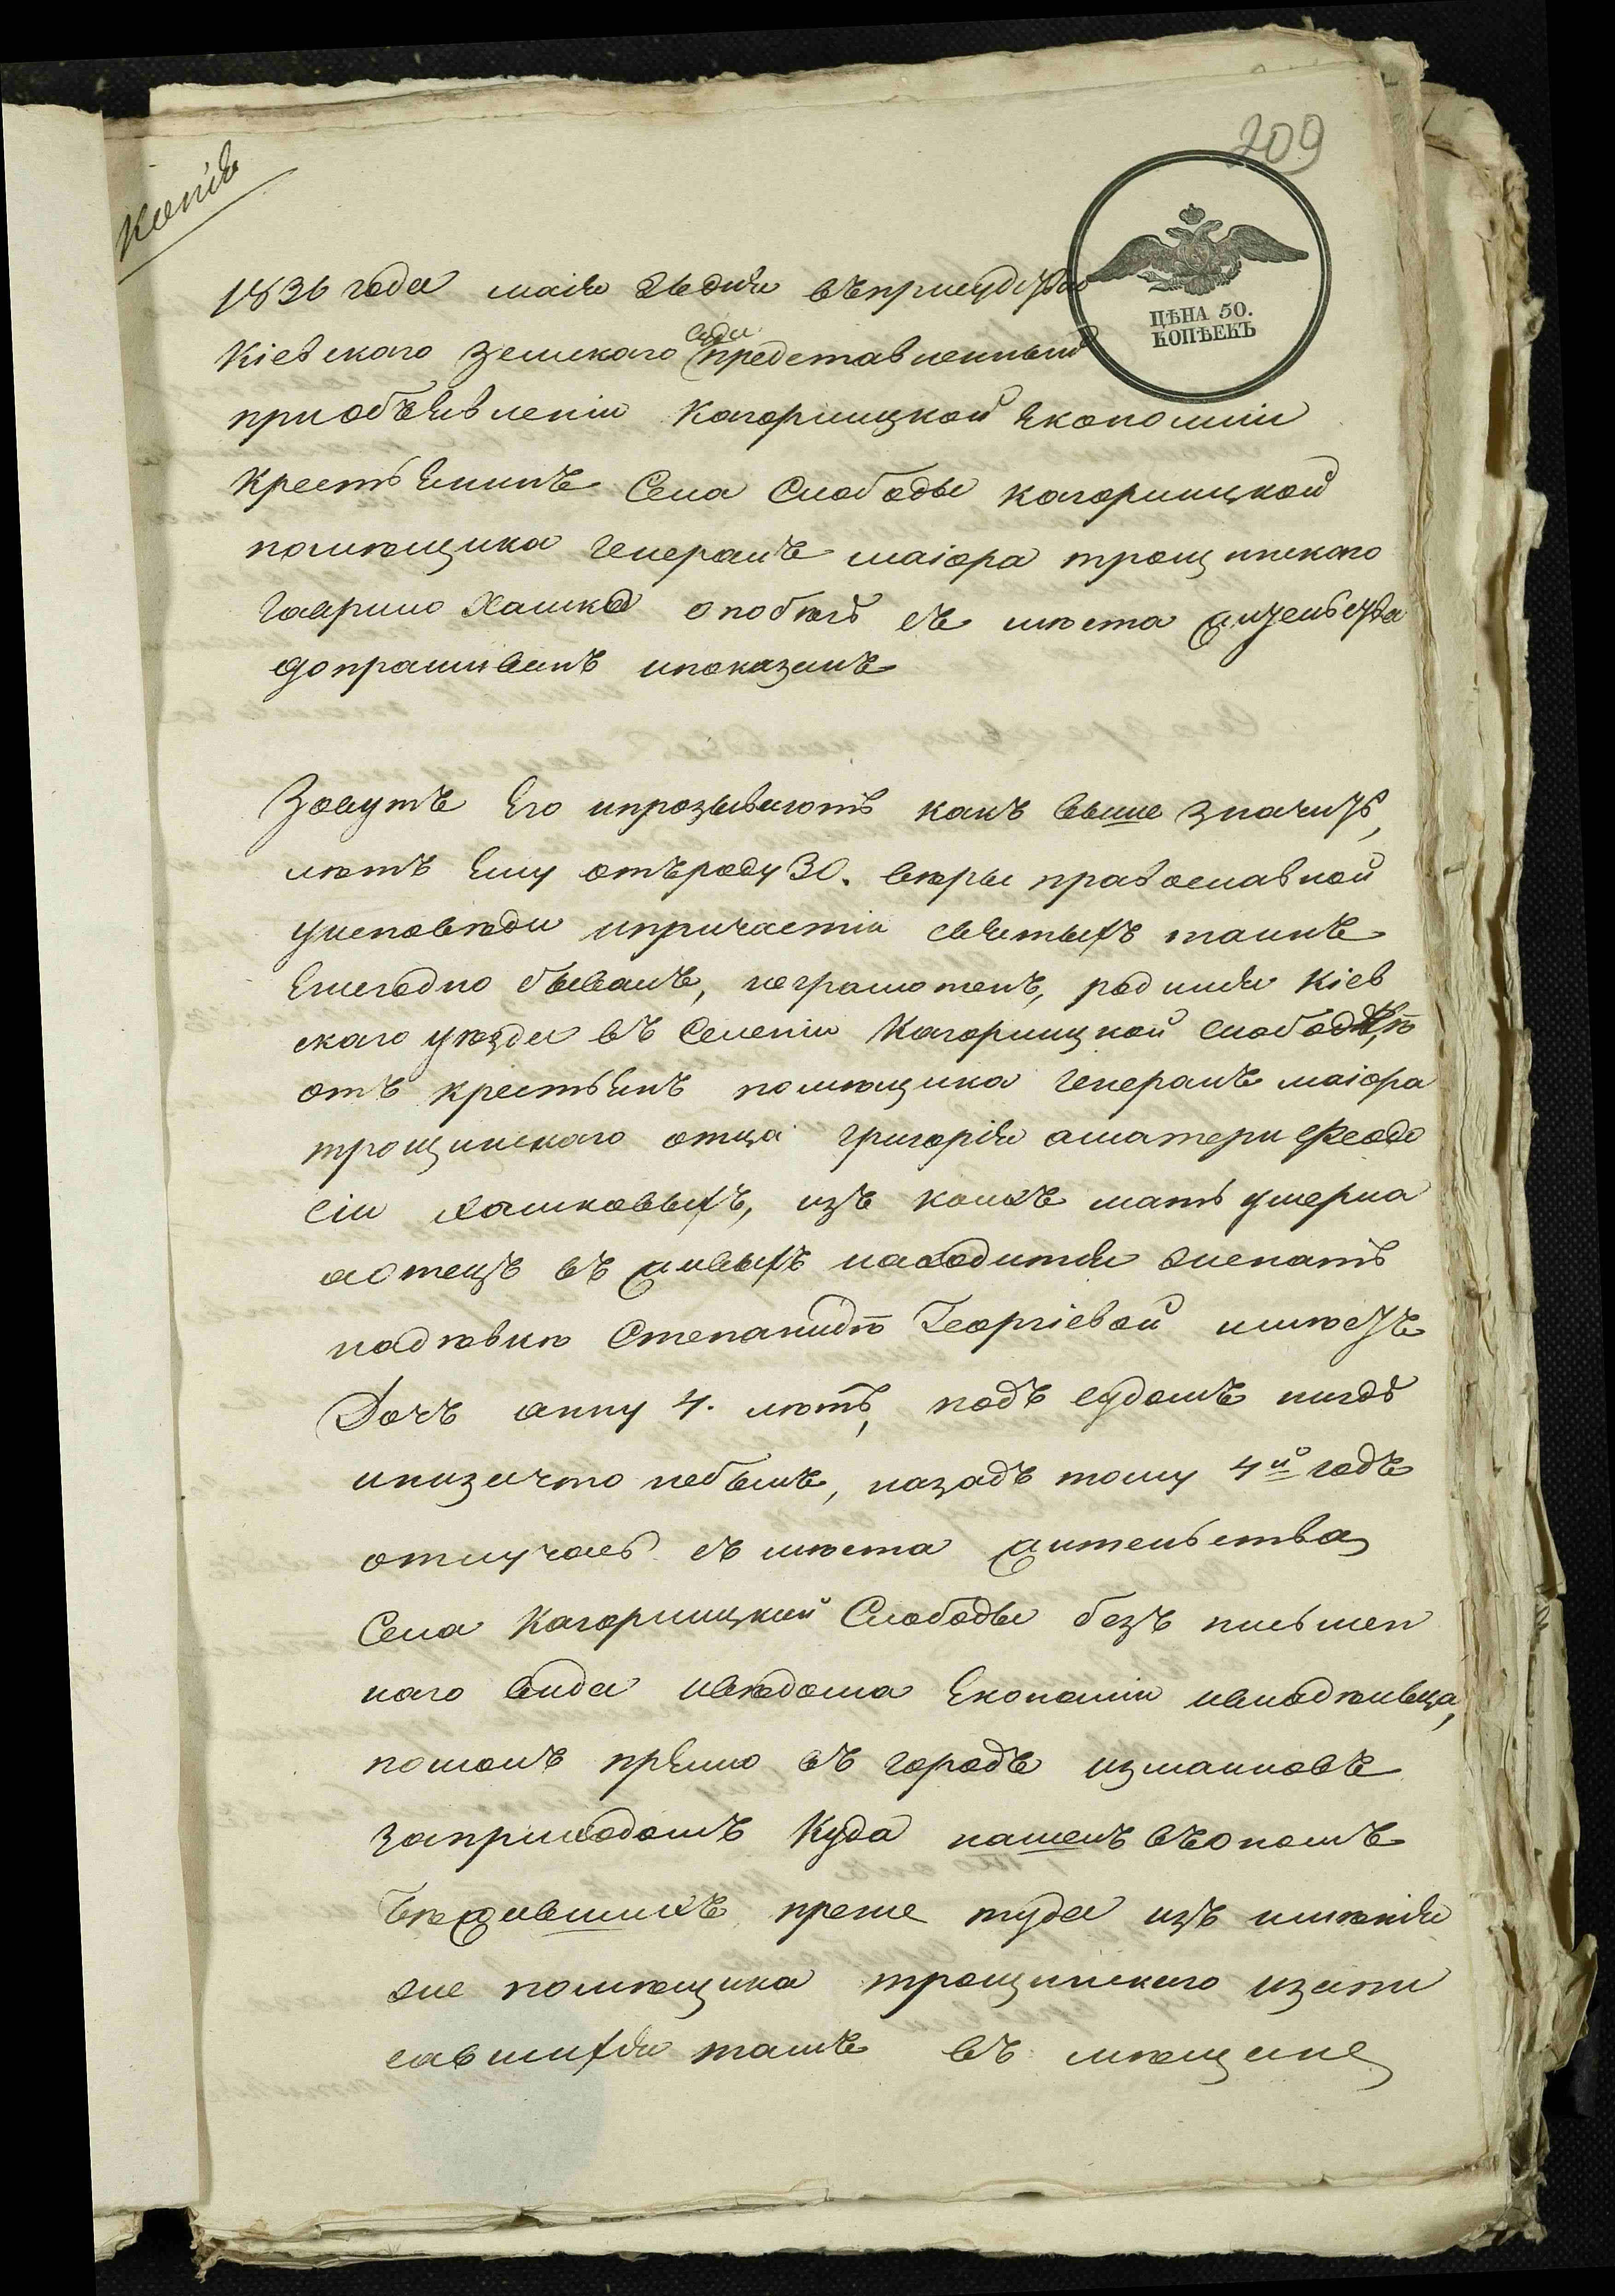 209
Копія
ЦѢНА 50.
КОПѢЕКЪ
1836 года маія 26 дня въприсудствіи
Кіевского Земского суда представленный
приобъявленіи Кагорлицкой Економіи
крестьянинъ Села Слободы кагорлицкой
помѣщика генералъ маіора трощинского
Гаврило Хашка опобѣгѣ съ мѣста жительства
допрашиванъ ипоказалъ
Зовутъ Его ипрозываютъ какъ выше значитъ,
лѣтъ Ему отъроду 30. вѣры православной
уисповѣди ипричастіи святыхъ таинъ
Ежегодно бывалъ, неграмотенъ, родился Кіев
скаго уѣзда въ Селеніи Кагорлицкой слободѣ,
отъ крестьянъ помѣщика генералъ маіора
трощинского отца григорія аматери Феодо
сіи Хашковыхъ, изъ коихъ мать умерла
аотецъ въ живыхъ находится женатъ
надѣвкѣ Степанидѣ Георгіевой имѣетъ
Дочъ анну 4. лѣтъ, подъ судомъ нигдѣ
инизачто небылъ, назадъ тому 4й годъ
отлучась съ мѣста жительства
Села Кагорлицкой Слободы безъ писмен
наго вида ивѣдома Економіи ивладѣльца,
пошолъ прямо въ городъ измаиловъ
заприходомъ Куда нашелъ въономъ
бѣжавшихъ преже туда изъ имѣнія
же помѣщика трощинского изапи
савшихся тамъ въ мѣщане